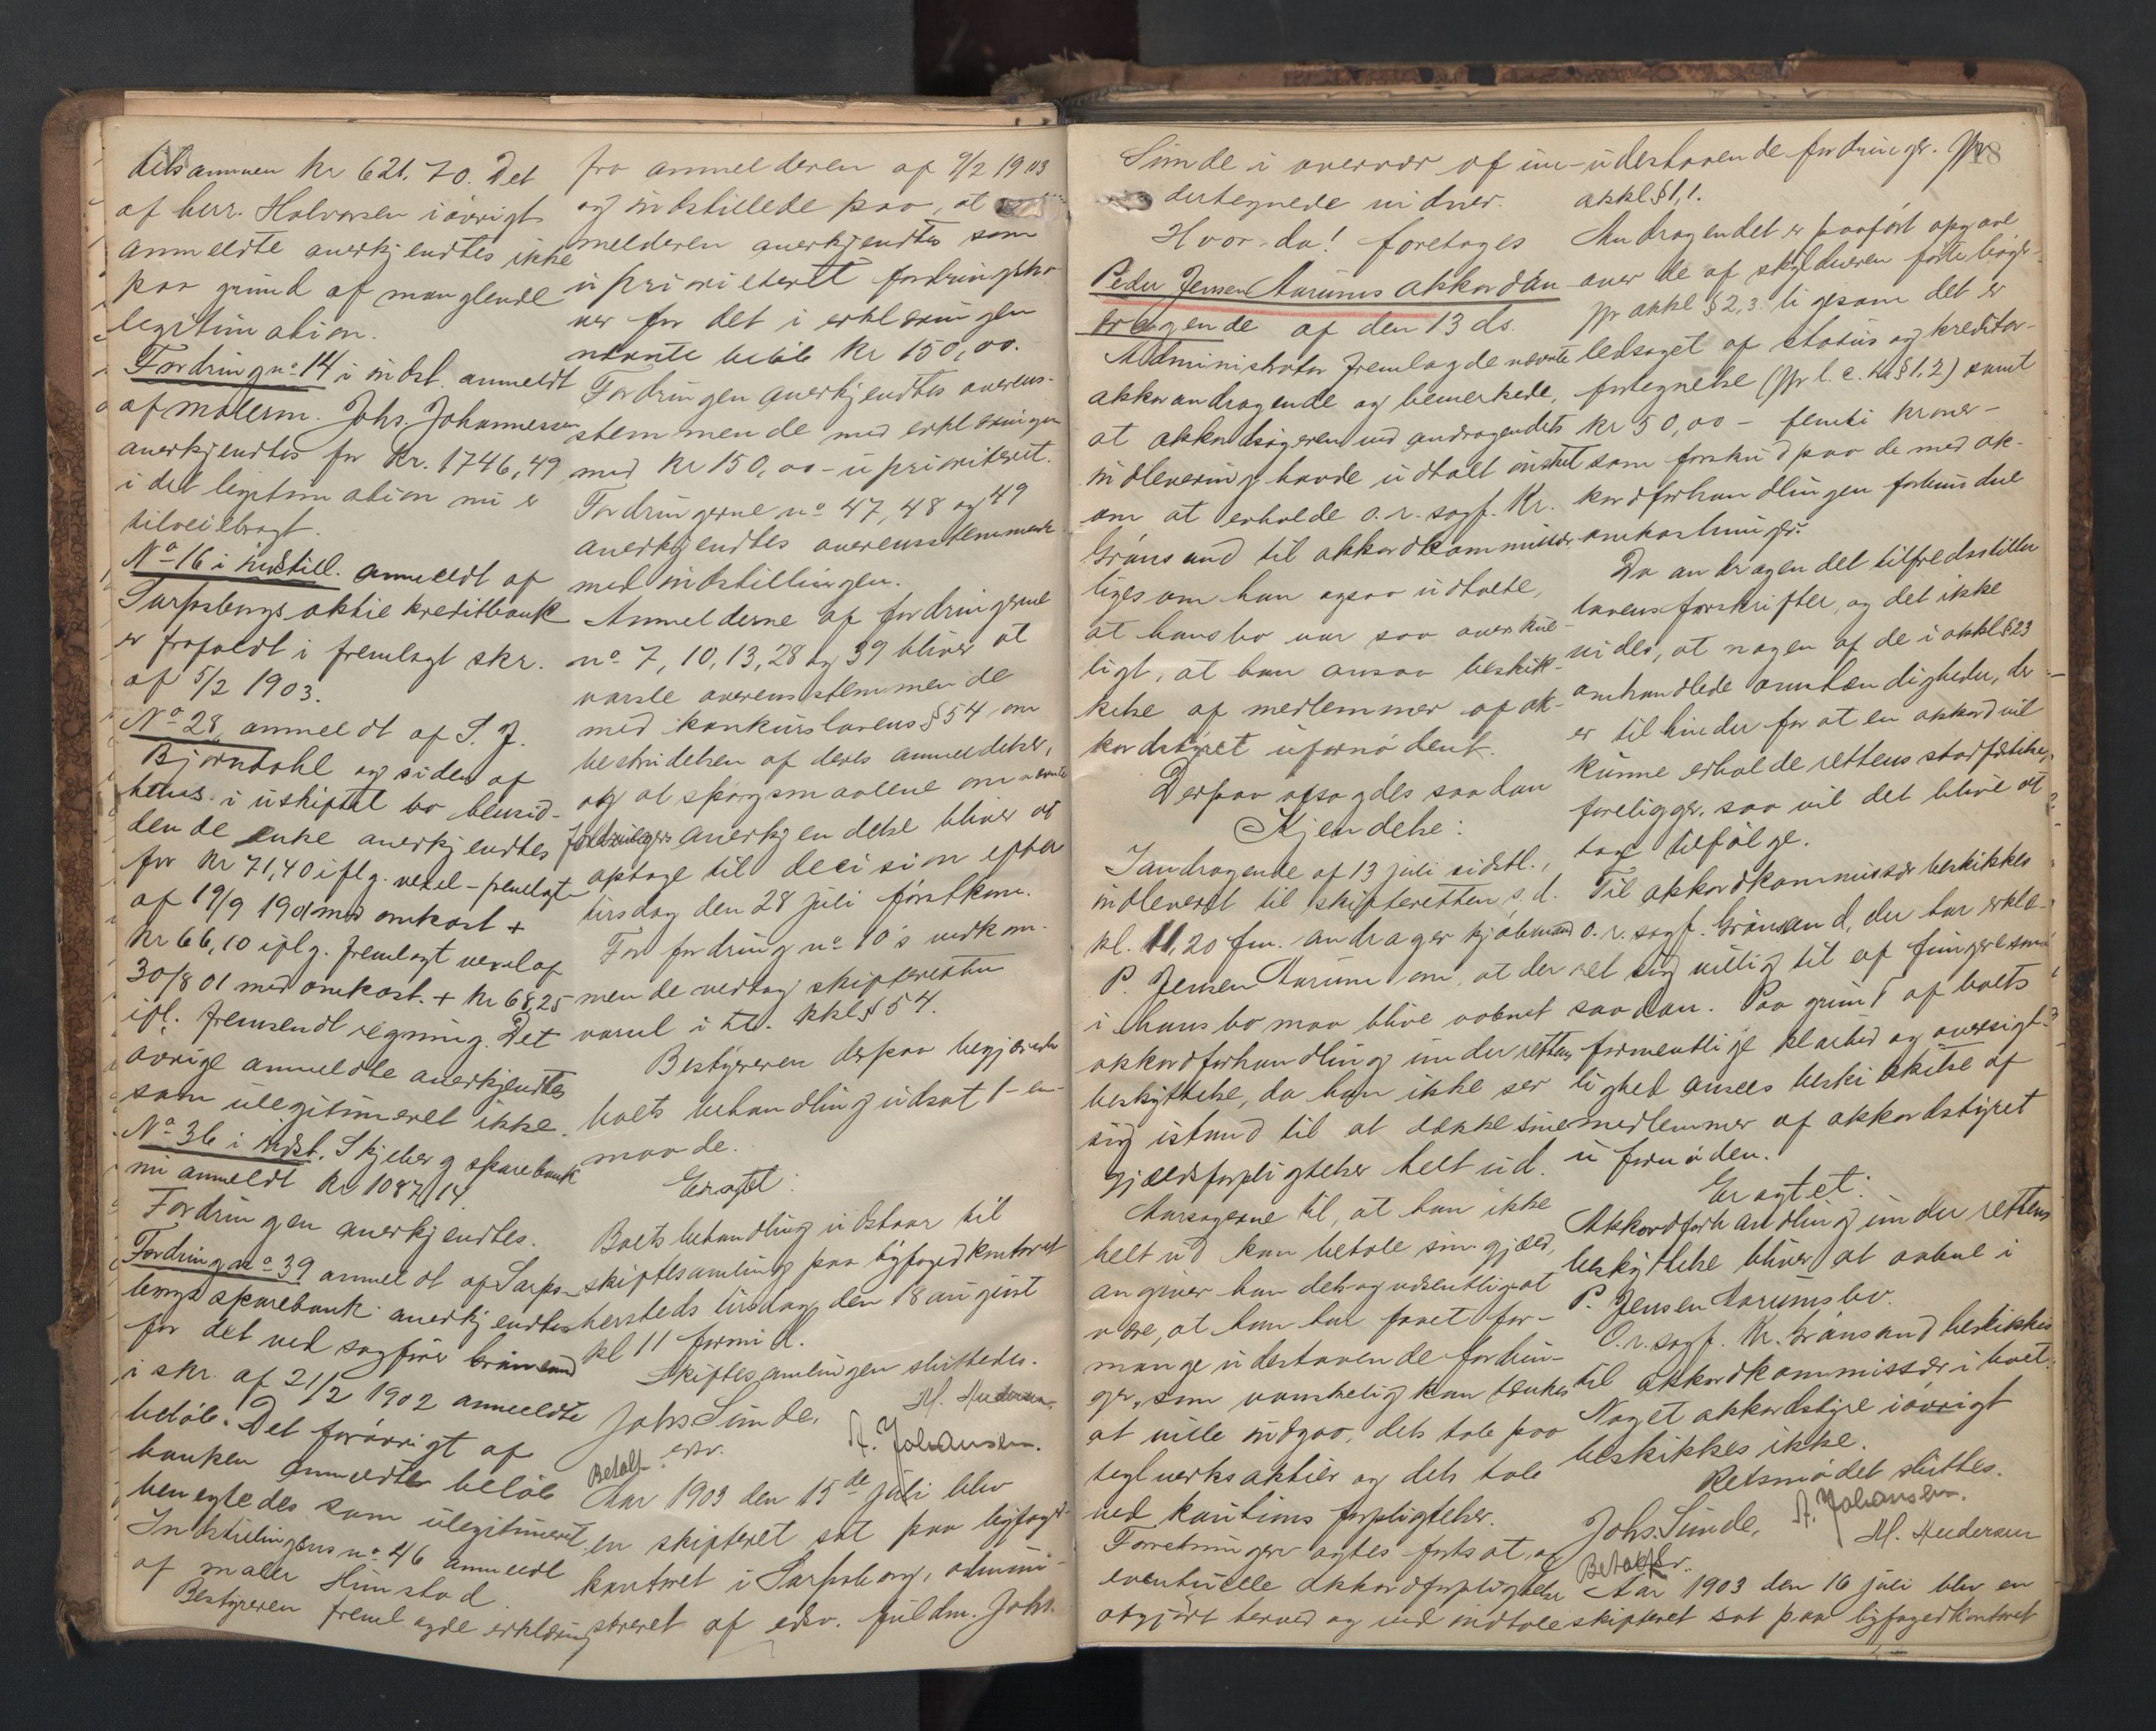 tilsammen Kr 621.70. Det
af herr. Halvorsen iøvrigt
anmeldte anerkjendtes ikke
paa grund af manglende
legitimation.
Fordring no 14 i indst. anmeldt
af malerm. Johs. Johannessen
anerkjendtes for Kr. 1746,49
i det legitimation nu er
tilveiebragt.
No 16 i indstill. anmeldt af
Sarpsborgs aktie kreditbank
er frafaldt i fremlagt skr.
af 5/2 1903.
No 28, anmeldt af S. J.
Bjørndahl og siden af
hans i uskiftet bo hensid-
dende enke anerkjendtes
for Kr 71,40 iflg. vexel-fremlagt
af 19/9 1901 med omkost +
Kr 66,10 iflg. fremlagt vexel af
30/8 01 med omkost. + Kr 68,25
ifl. fremsendt regning. Det
øvrige anmeldte anerkjendtes
som ulegitimeret ikke.
No 36 i indst. Skjeberg sparebank
nu anmeldt Kr 1087,14.
Fordringen anerkjendtes.
Fordring no 39 anmeldt af Sarps-
borgs sparebank anerkjendtes
for det ved sagfører Grønsand
i skr. af 21/2 1902 anmeldte
beløb. Det forøvrigt af
banken anmeldte beløb
benegtedes som ulegitimeret
Indstillingens no 46 anmeldt
af maler Himstad.
Bestyreren fremlagde erklæring
fra anmelderen af 9/2 1903
og indstillede paa, at
melderen anerkjendtes som
uprioriteret fordringsha-
ver for det i erklæringen
nævnte beløb Kr 150,00.
Fordringen anerkjendtes overens-
stemmende med erklæringen
med Kr 150,00 - uprioriteret.
Fordringerne no 47, 48 og 49
anerkjendtes overensstemmende
med indstillingen.
Anmelderne af fordringerne
no 7, 10, 13, 28 og 39 bliver at
varsle overensstemmende
med konkurslovens § 54 om
bestridelsen af deres anmeldelser,
og at spørgsmaalene om nævnte
fordringers anerkjendelse bliver at
optage til decision efter
tirsdag den 28 juli førstkom.
For fordring no 10's vedkom-
mende vedtog skifteretten
varsel i h.t. kkl § 54.
Bestyreren derpaa begjærede
boets behandling udsat 1 - en -
maaned.
Eragtet:
Boets behandling udstaar til
skiftesamling paa byfogedkontoret
hersteds tirsdag den 18 august
kl 11 formid.
Skiftesamlingen sluttedes.
Johs Sunde,
edsv.
M. Andersen.
A. Johansen.
Betalt
Aar 1903 den 15de juli blev
en skifteret sat paa byfoged-
kontoret i Sarpsborg, admini-
streret af edsv. fuldm. Johs.
18
Sunde i overvær af un-
dertegnede vidner.
Hvor-da! foretoges
Peder Jensen Aarums akkordan-
dragende af den 13 ds.
Administrator fremlagde nævnte
akkorandragende og bemerkede,
at akkordsøgeren ved andragendets
indlevering havde udtalt ønsket
om at erholde o.r. sagf. Kr.
Grønsand til akkordkommissær,
ligesom han ogsaa udtalte,
at hans bo var saa overskue-
ligt, at han ansaa beskik-
kelse af medlemmer af ak-
kordstyret ufornødent.
Derpaa afsagdes saadan
Kjendelse:
I andragende af 13 juli sidstl.,
indleveret til skifteretten s. d.
kl. 11,20 fm. andrager kjøbmand
P. Jensen Aarum om, at der
i hans bo maa blive aabnet
akkordforhandling under rettens
beskyttelse, da han ikke ser
sig istand til at dække sine
gjældsforpligtelser helt ud.
Aarsagerne til, at han ikke
helt ud kan betale sin gjæld,
angiver han dels og væsentligst at
være, at han har faaet for-
mange udestaaende fordrin-
ger, som vanskelig kan tænkes
at ville indgaa, dels tab paa
teglverksaktier og dels tab
ved kautions forpligtelser.
Forretningen agtes fortsat og
eventuelle akkordforpligtelse
afgjørt derved og ved indtale
udestaaende fordringer. Jfr
akkl § 1, 1.
Andragendet er paaført opgave
over de af skyldneren førte bøger
jfr akkl § 2, 3. ligesom det er
ledsaget af status og kreditor-
fortegnelse (jfr l. c. § 1, 2) samt
Kr 50,00 - femti kroner -
som forskud paa de med ak-
kordforhandlingen forbundne
omkostninger.
Da andragendet tilfredsstiller
lovens forskrifter, og det ikke
vides, at nogen af de i akkl § 23
omhandlede omstændigheder, der
er til hinder for at en akkord vil
kunne erholde rettens stadfæstelse,
foreligger, saa vil det blive at
tage tilfølge.
Til akkordkommissær beskikkes
o.r. sagf. Grønsand, der har erklæ-
ret sig villig til at fungere som
saadan. Paa grund af boets
formentlige klarhed og oversigt-
lighed ansees beskikkelse af
medlemmer af akkordstyret
ufornøden.
Eragtet:
Akkordforhandling under rettens
beskyttelse bliver at aabne i
P. Jensen Aarums bo.
O.r. sagf. Kr. Grønsand beskikkes
til akkordkommissær i boet.
Noget akkordstyre iøvrigt
beskikkes ikke.
Retsmødet sluttes.
Johs. Sunde,
A. Johansen.
M. Andersen
Betalt
Aar 1903 den 16 juli blev en
skifteret sat paa byfogedkontoret